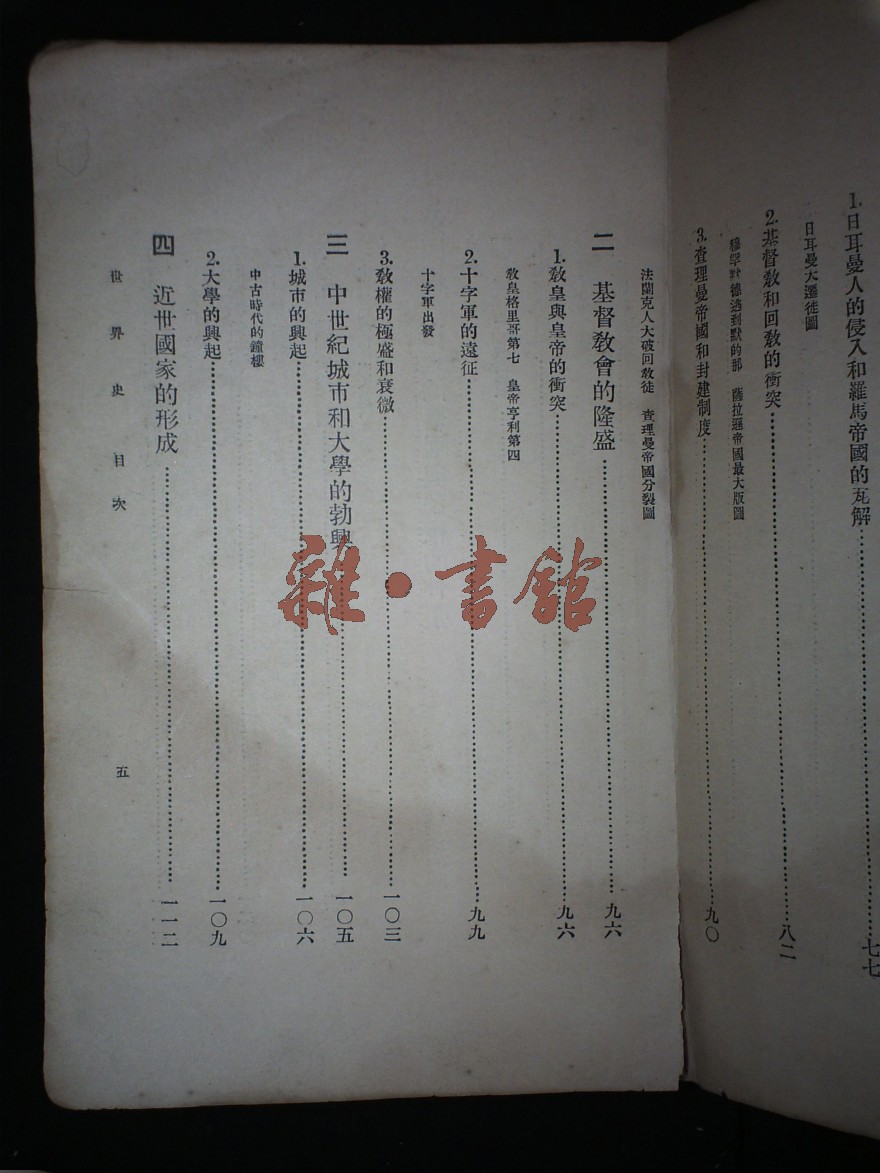 1.日耳曼人的侵入和羅馬帝國的瓦解……七七
日耳曼大遷徒圖
2.基督教和回教的衝突……八二
穆罕默德逃到默的那 薩拉遜帝國最大版圖
3.查理曼帝國和封建制度……九〇
法蘭克人大破回教徒 查理曼帝國分裂圖
二 基督教會的隆盛……九六
1.教皇與皇帝的衝突……九六
教皇格里哥第七 皇帝亨利第四
2.十字軍的遠征……九九
十字軍出發
3.教權的極盛和衰微……一〇三
三 中世紀城市和大學的勃興……一〇五
1.城市的興起……一〇六
中古時代的鐘樓
2.大學的興起……一〇九
四 近世國家的形成……一一二
世界史目次
五
雜·書館